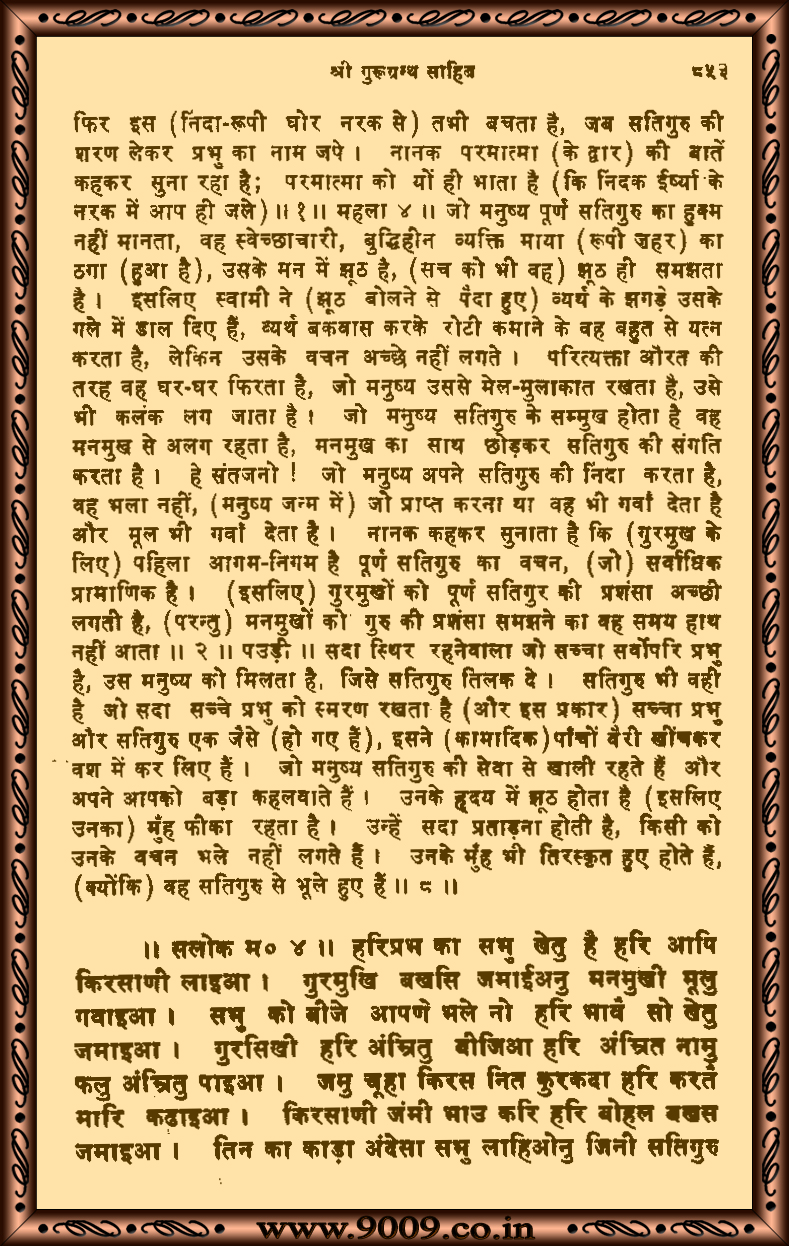 श्री गुरूग्रन्थ साहिब ८५३
फिर इस (निंदा-रूपी घोर नरक से) तभी बचता है, जब सतिगुरु की
शरण लेकर प्रभु का नाम जपे । नानक परमात्मा (के द्वार) की बातें
कहकर सुना रहा है; परमात्मा को यों ही भाता है (कि निंदक ईर्ष्या के
नरक में आप ही जले) ॥ १ ॥ महला ४ ॥ जो मनुष्य पूर्ण सतिगुरु का हुक्म
नहीं मानता, वह स्वेच्छाचारी, बुद्धिहीन व्यक्ति माया (रूपी ज़हर) का
ठगा (हुआ है), उसके मन में झूठ है, (सच को भी वह) झूठ ही समझता
है । इसलिए स्वामी ने (झूठ बोलने से पैदा हुए) व्यर्थ के झगड़े उसके
गले में डाल दिए हैं, व्यर्थ बकवास करके रोटी कमाने के वह बहुत से यत्न
करता है, लेकिन उसके वचन अच्छे नहीं लगते । परित्यक्ता औरत की
तरह वह घर-घर फिरता है, जो मनुष्य उससे मेल-मुलाकात रखता है, उसे
भी कलंक लग जाता है । जो मनुष्य सतिगुरु के सम्मुख होता है वह
मनमुख से अलग रहता है, मनमुख का साथ छोड़कर सतिगुरु की संगति
करता है । हे संतजनो ! जो मनुष्य अपने सतिगुरु की निंदा करता है,
वह भला नहीं, (मनुष्य जन्म में) जो प्राप्त करना था वह भी गवाँ देता है
और मूल भी गवाँ देता है । नानक कहकर सुनाता है कि (गुरमुख के
लिए) पहिला आगम-निगम है पूर्ण सतिगुरु का वचन, (जो) सर्वाधिक
प्रामाणिक है । (इसलिए) गुरमुखों को पूर्ण सतिगुर की प्रशंसा अच्छी
लगती है, (परन्तु) मनमुखों को गुरु की प्रशंसा समझने का वह समय हाथ
नहीं आता ॥ २ ॥ पउड़ी ॥ सदा स्थिर रहनेवाला जो सच्चा सर्वोपरि प्रभु
है, उस मनुष्य को मिलता है, जिसे सतिगुरु तिलक दे । सतिगुरु भी वही
है जो सदा सच्चे प्रभु को स्मरण रखता है (और इस प्रकार) सच्चा प्रभु
और सतिगुरु एक जैसे (हो गए हैं), इसने (कामादिक) पाँचों वैरी खींचकर
वश में कर लिए हैं । जो मनुष्य सतिगुरु की सेवा से खाली रहते हैं और
अपने आपको बड़ा कहलवाते हैं । उनके हृदय में झूठ होता है (इसलिए
उनका) मुँह फीका रहता है । उन्हें सदा प्रताड़ना होती है, किसी को
उनके वचन भले नहीं लगते हैं । उनके मुँह भी तिरस्कृत हुए होते हैं,
(क्योंकि) वह सतिगुरु से भूले हुए हैं ॥ ८ ॥
॥ सलोक म० ४ ॥ हरिप्रभ का सभु खेतु है हरि आपि
किरसाणी लाइआ । गुरमुखि बखसि जमाईअनु मनमुखी मूलु
गवाइआ । सभु को बीजे आपणे भले नो हरि भावै सो खेतु
जमाइआ । गुरसिखी हरि अंम्रितु बीजिआ हरि अंम्रित नामु
फलु अंम्रितु पाइआ । जमु चूहा किरस नित कुरकदा हरि करतै
मारि कढाइआ । किरसाणी जंमी भाउ करि हरि बोहल बखस
जमाइआ । तिन का काड़ा अंदेसा सभु लाहिओनु जिनी सतिगुरु
www.9009.co.in